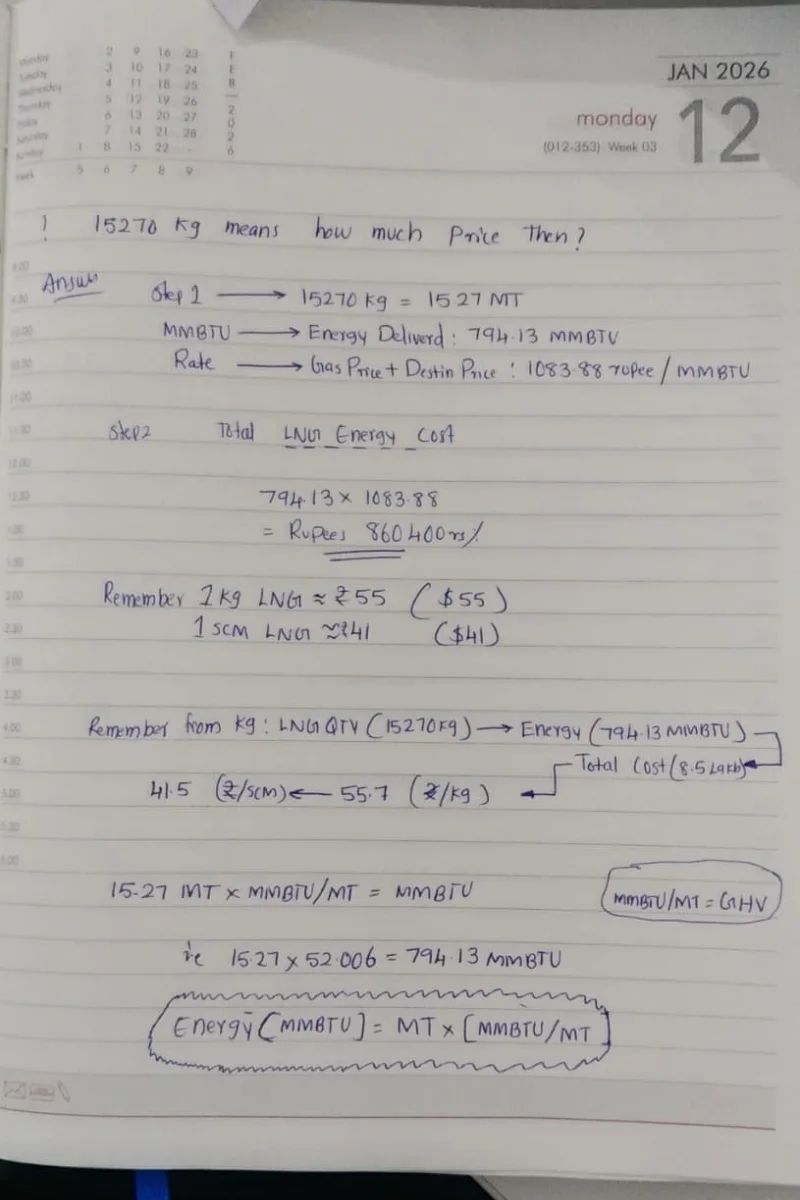 JAN 2026
monday 12
(012-353) Week 03
Monday 2 9 16 23 F
Tuesday 3 10 17 24 E
Wednesday 4 11 18 25 B
Thursday 5 12 19 26
Friday 6 13 20 27 2
Saturday 7 14 21 28 0
Sunday 1 8 15 22 - 2
6
Week 5 6 7 8 9
! 15270 kg means how much Price then?
Answer Step 1 → 15270 kg = 15.27 MT
MMBTU → Energy Deliverd : 794.13 MMBTU
Rate → Gas Price + Destin Price : 1083.88 rupee / MMBTU
Step 2 Total LNG Energy Cost
794.13 × 1083.88
= Rupees 860400 rs/.
Remember 1 kg LNG ≈ ₹55 ($55)
1 SCM LNG ≈ ₹41 ($41)
Remember from kg : LNG QTY (15270kg) → Energy (794.13 MMBTU)
Total Cost (8.5 Lakh)
41.5 (₹/SCM) ← 55.7 (₹/kg)
15.27 MT × MMBTU/MT = MMBTU
MMBTU/MT = GHV
ie 15.27 × 52.006 = 794.13 MMBTU
Energy [MMBTU] = MT × [MMBTU/MT]
9.30
10.00
10.30
11.00
11.30
12.00
12.30
1.00
1.30
2.00
2.30
3.00
3.30
4.00
4.30
5.00
5.30
6.00